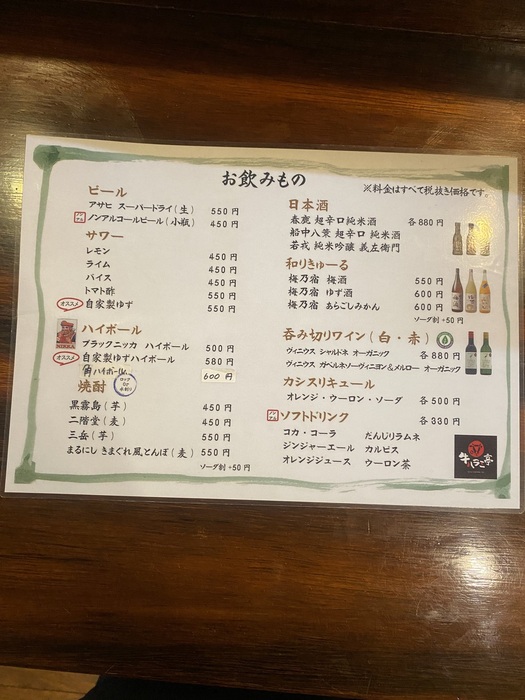 お飲みもの
※料金はすべて税抜き価格です。
ビール
アサヒ スーパードライ(生) 550円
ノンアルコールビール(小瓶) 450円
サワー
レモン 450円
ライム 450円
バイス 450円
トマト酢 550円
オススメ 自家製ゆず 550円
NIKKA
ハイボール
ブラックニッカ ハイボール 500円
オススメ 自家製ゆずハイボール 580円
角ハイボール 600円
焼酎
ロック
水割り
黒霧島(芋) 450円
二階堂(麦) 450円
三岳(芋) 550円
まるにし きまぐれ風とんぼ(麦) 550円
ソーダ割+50円
日本酒
春鹿 超辛口純米酒 各880円
船中八策 超辛口 純米酒
若戎 純米吟醸 義左衛門
和りきゅーる
梅乃宿 梅酒 550円
梅乃宿 ゆず酒 600円
梅乃宿 あらごしみかん 600円
ソーダ割+50円
呑み切りワイン(白・赤)
ヴィニウス シャルドネ オーガニック 各880円
ヴィニウス ガベルネソーヴィニヨン&メルロー オーガニック
カシスリキュール
オレンジ・ウーロン・ソーダ 各500円
ソフトドリンク 各330円
コカ・コーラ だんじりラムネ
ジンジャーエール カルピス
オレンジジュース ウーロン茶
牛ハラミ亭